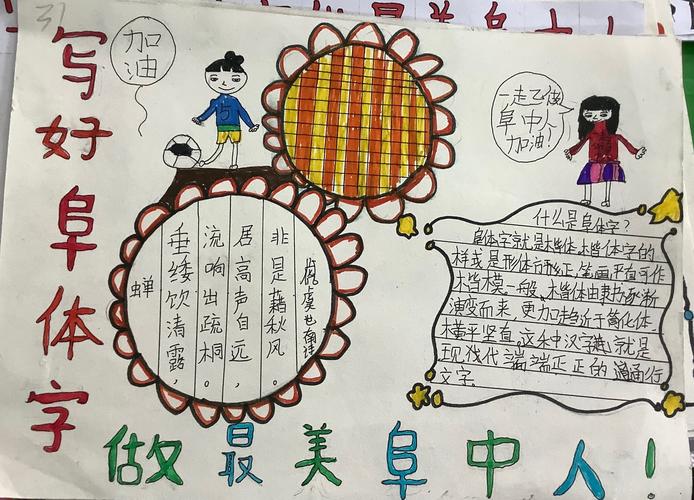 31
写好阜体字
加油
一起做
阜中人
加油!
蝉
垂緌饮清露，
流响出疏桐。
居高声自远，
非是藉秋风。
虞世南诗
什么是阜体字?
阜体字就是楷体,楷体字的
样式是形体方正,笔画平直可作
楷模一般、楷体由隶书逐渐
演变而来，更加趋近于简化体.
横平竖直,这个中汉字就是
现代端端正正的通行
文字.
做最美阜中人!